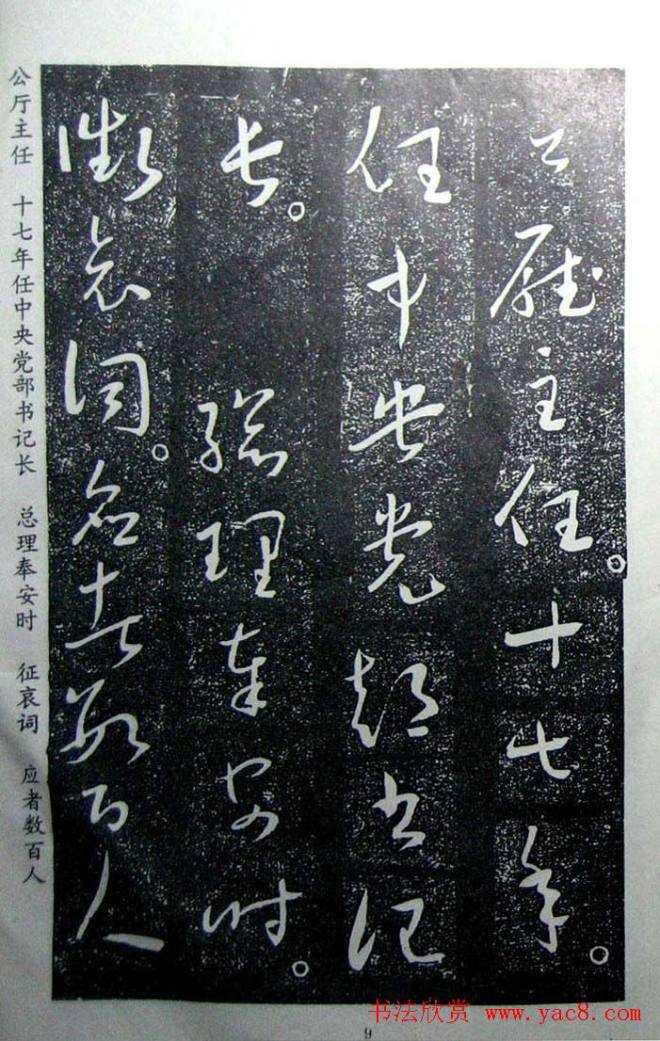 公廳主任。十七年。
任中央党部书记
长。總理奉安时。
徵哀词。应者数百人
公厅主任 十七年任中央党部书记长 总理奉安时 征哀词 应者数百人
书法欣赏 www.yac8.com
9